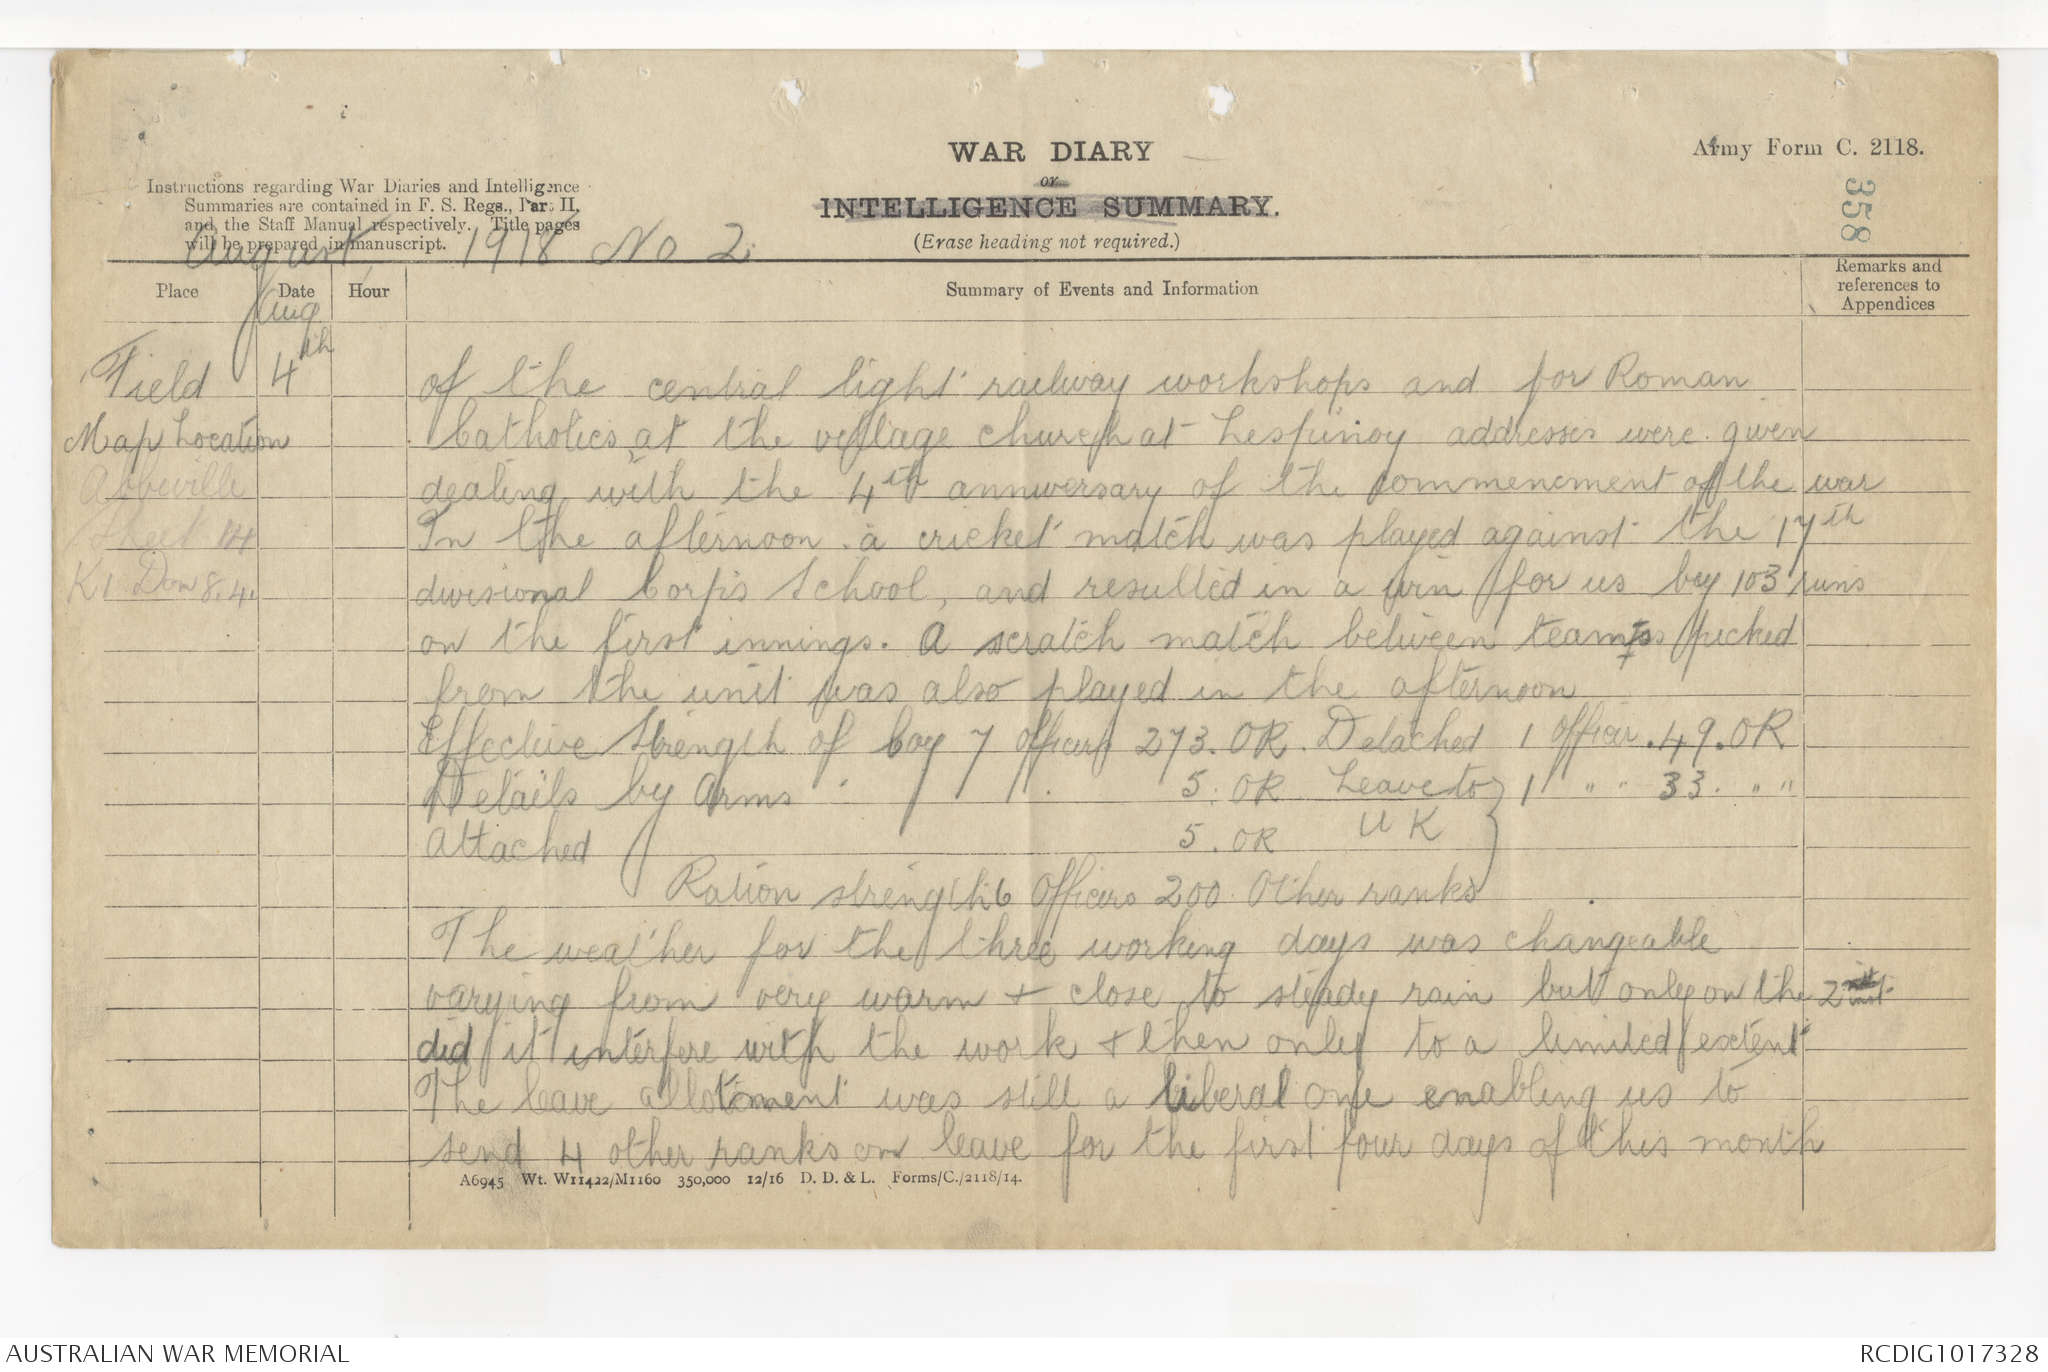 WAR DIARY
or
INTELLIGENCE SUMMARY.
(Erase heading not required.)
Army Form C. 2118.
358
Instructions regarding War Diaries and Intelligence
Summaries are contained in F. S. Regs., Part II,
and the Staff Manual respectively. Title pages
will be prepared in manuscript.
August 1918 No 2
Place
Date
Hour
Summary of Events and Information
Remarks and
references to
Appendices
Aug
Field 4th
Map Location
Abbeville
Sheet 14
K1 8.4.
of the central light railway workshops and for Roman
Catholics at the village church at Lespinoy addresses were given
dealing with the 4th anniversary of the commencment of the war
In the afternoon a cricket match was played against the 17th
divisional Corps School, and resulted in a win for us by 103 runs
on the first innings. A scratch match between teams picked
from the unit was also played in the afternoon
Effective Strength of Coy 7 officers 273. OR. Detached 1 officer. 49. OR
Details by Arms 5. OR Leave to } 1 " " 33. " "
Attached 5. OR U K
Ration strength 6 Officers 200 Other ranks
The weather for the three working days was changeable
varying from very warm + close to steady rain but only on the 2
did it interfere with the work + then only to a limited extent
The leave allotment was still a liberal one enabling us to
send 4 other ranks on leave for the first four days of this month
A6945 Wt. W11422/M1160 350,000 12/16 D. D. & L. Forms/C./2118/14.
AUSTRALIAN WAR MEMORIAL
RCDIG1017328